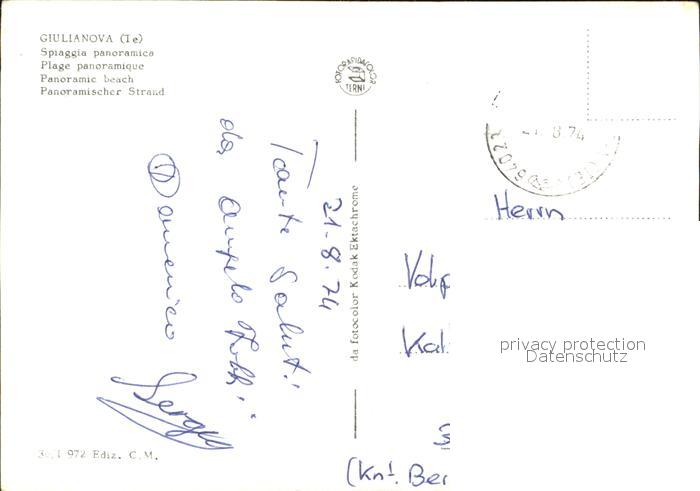 GIULIANOVA (Te)
Spiaggia panoramica
Plage panoramique
Panoramic beach
Panoramischer Strand
FOTORAPIDACOLOR
TERNI
da fotocolor Kodak Ektachrome
21-8.74
Tante Saluti
da Angelo
Domenico
Sergio
8.74
64021
Herrn
Volp
Kal
(Knt. Ber
privacy protection
Datenschutz
972 Ediz. C.M.